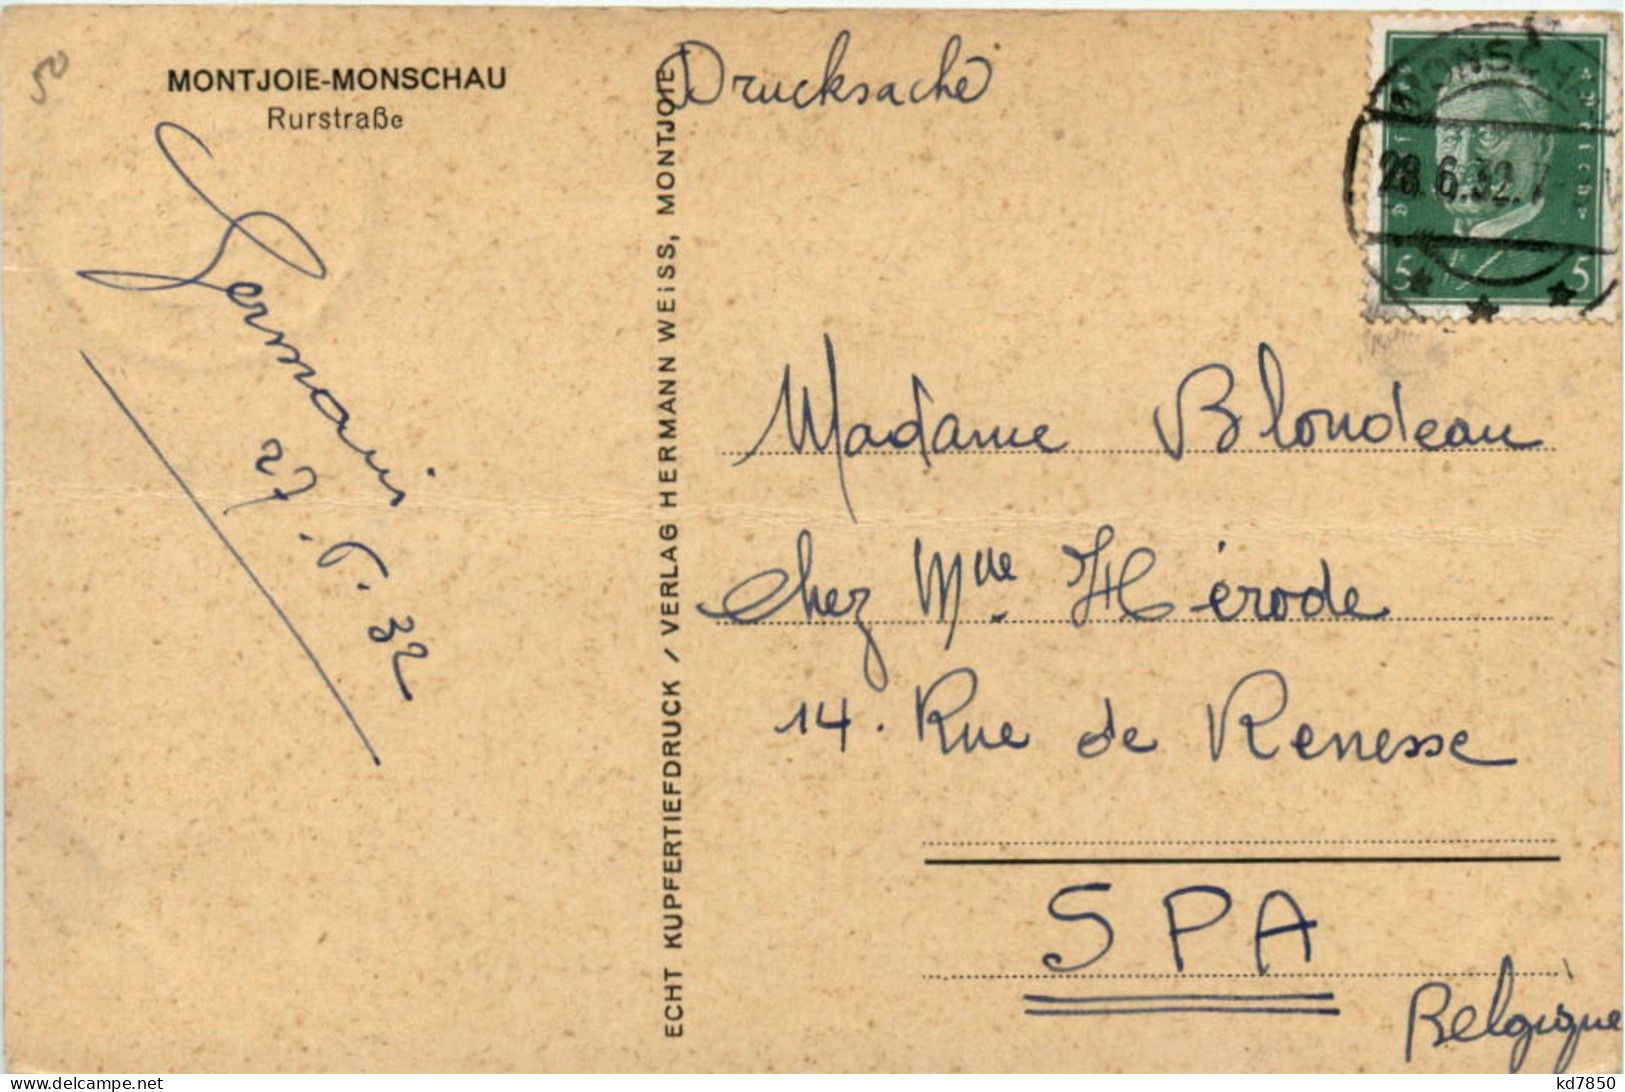 50
MONTJOIE-MONSCHAU
Rurstraße
Germain
27. 6. 32
ECHT KUPFERTIEFDRUCK / VERLAG HERMANN WEISS, MONTJOIE
Drucksache
MONSCHAU
28.6.32.
5 5
Madame Blondeau
chez Mlle Hérode
14. Rue de Renesse
SPA
Belgique
kd7850